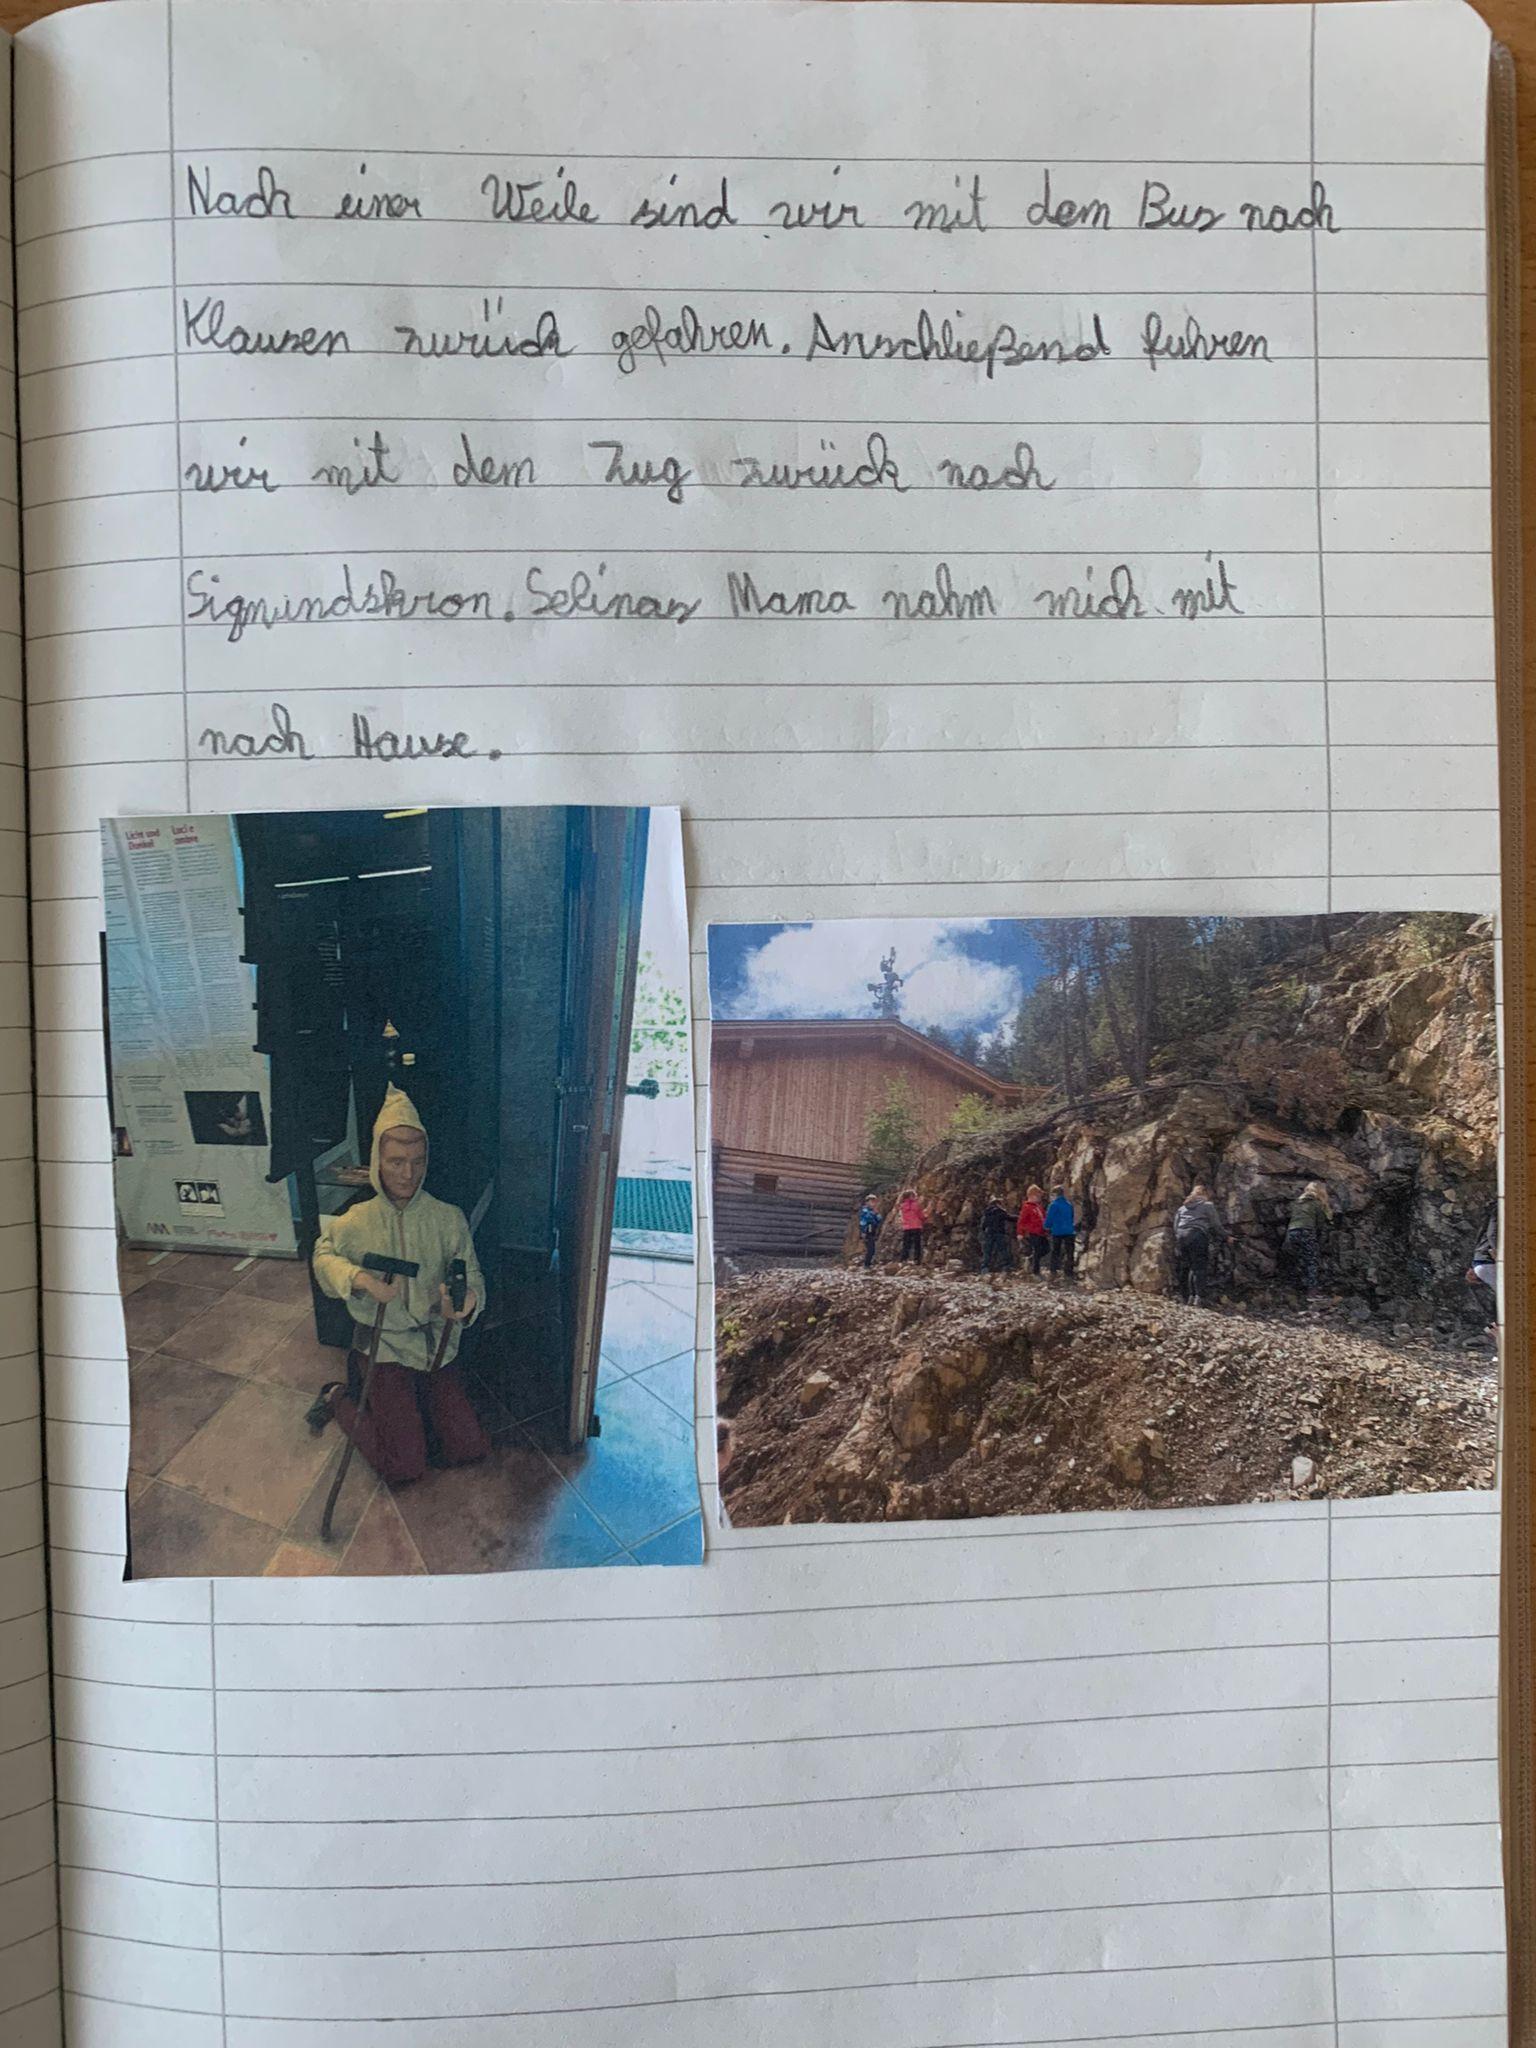 Nach einer Weile sind wir mit dem Bus nach
Klausen zurück gefahren. Anschließend fuhren
wir mit dem Zug zurück nach
Sigmundskron. Selinas Mama nahm mich mit
nach Hause.
Licht und Luci e
Dunkel ombre